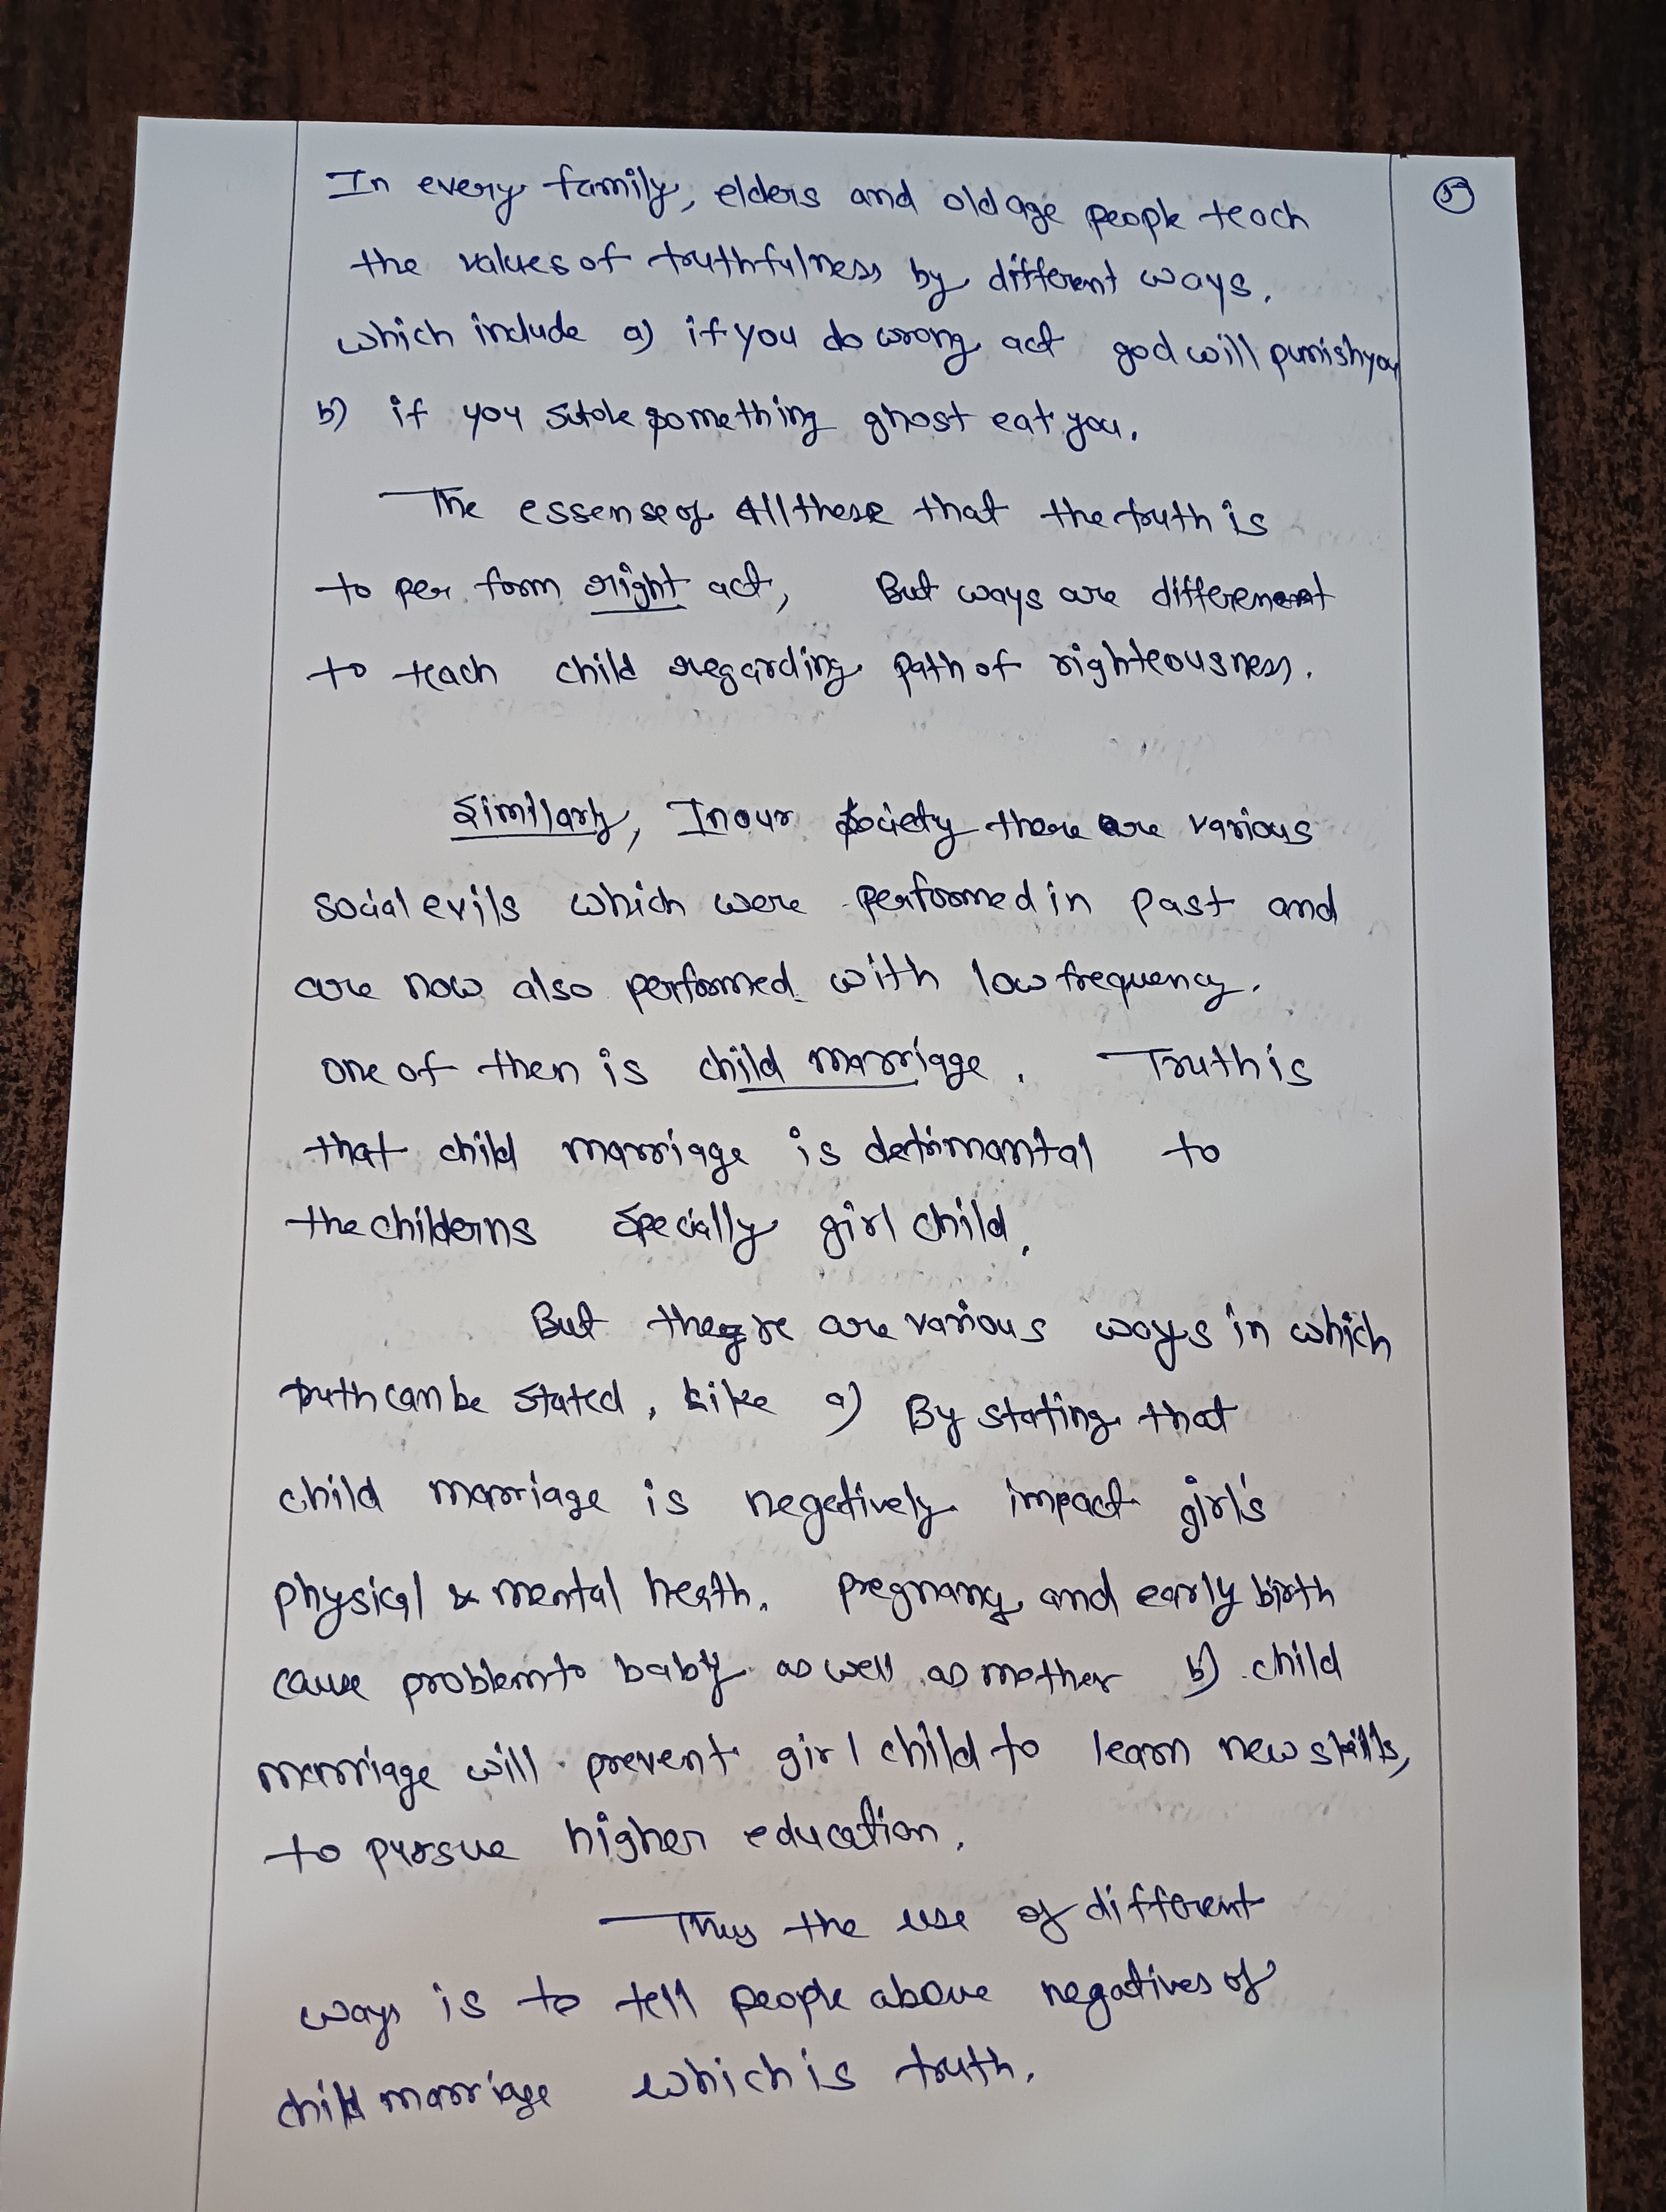 In every family, elders and old age people teach
the values of truthfulness by different ways.
which include a) if you do wrong act god will punish you
b) if you stole something ghost eat you.
The essense of All these that the truth is
to per form right act, But ways are different
to teach child regarding path of righteousness.
Similarly, In our society there are various
social evils which were performed in past and
are now also performed with low frequency.
one of then is child marriage. Truth is
that child marriage is detrimantal to
the childerns specially girl child.
But there are various ways in which
truth can be stated, like a) By stating that
child marriage is negatively impact girl's
physical & mental heath. pregnancy and early birth
cause problem to baby as well as mother b) child
marriage will prevent girl child to learn new skills,
to pursue higher education.
Thus the use of different
ways is to tell people above negatives of
child marriage which is truth.